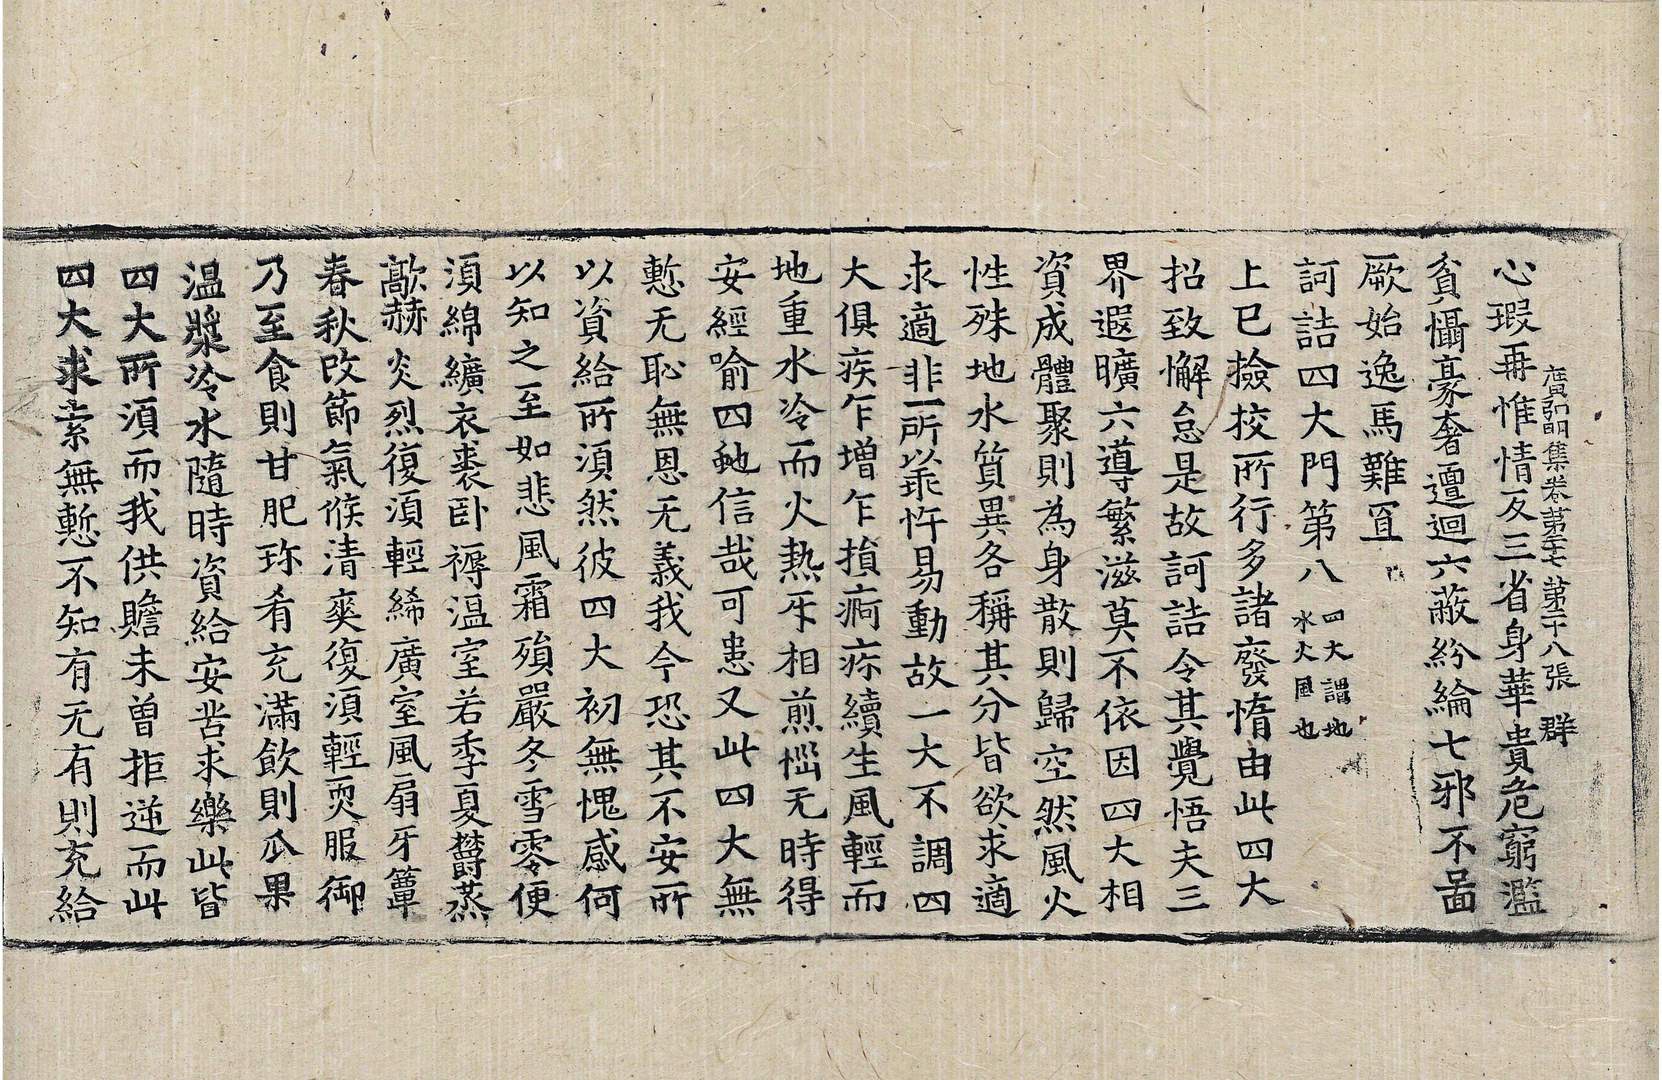 廣弘明集卷第二十七 第二十八張 群
心瑕再惟情反三省身華貴危窮濫
貧懾豪奢邅迴六蔽紛綸七邪不啚
厥始逸馬難
訶詰四大門第八 四大謂地
水火風也
上已撿校所行多諸廢惰由此四大
招致懈怠是故訶詰令其覺悟夫三
界遐曠六導繁滋莫不依因四大相
資成體聚則為身散則歸空然風火
性殊地水質異各稱其分皆欲求適
求適非一所以乖忤易動故一大不調四
大俱疾乍增乍損痾疹續生風輕而
地重水冷而火熱牙相煎惱无時得
安經喻四虵信哉可患又此四大無
慙无恥無恩无義我今恐其不安所
以資給所須然彼四大初無愧感何
以知之至如悲風霜殞嚴冬雪零便
須綿纊衣裘卧褥温室若季夏欝蒸
歊赫炎烈復須輕絺廣室風扇牙簟
春秋改節氣候清爽復須輕耎服御
乃至食則甘肥珎肴充滿飲則瓜果
温漿冷水隨時資給安苦求樂此皆
四大所須而我供贍未曾拒逆而此
四大求索無慙不知有无有則充給